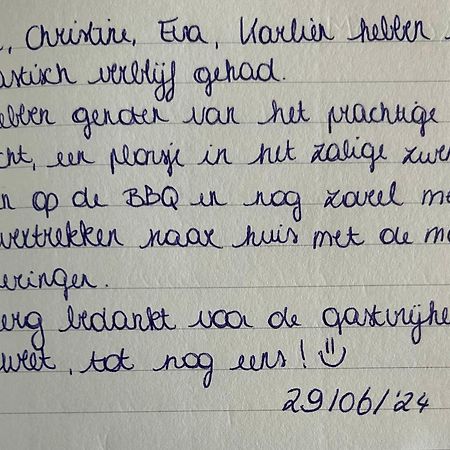 , Christine, Eva, Karlien hebben
astisch verblijf gehad.
ebben genoten van het prachtige
cht, een plonsje in het zalige zwe
n op de BBQ en nog zoveel me
vertrekken naar huis met de mo
eringen.
erg bedankt voor de gastvrijhe
weet, tot nog eens!
29/06/'24